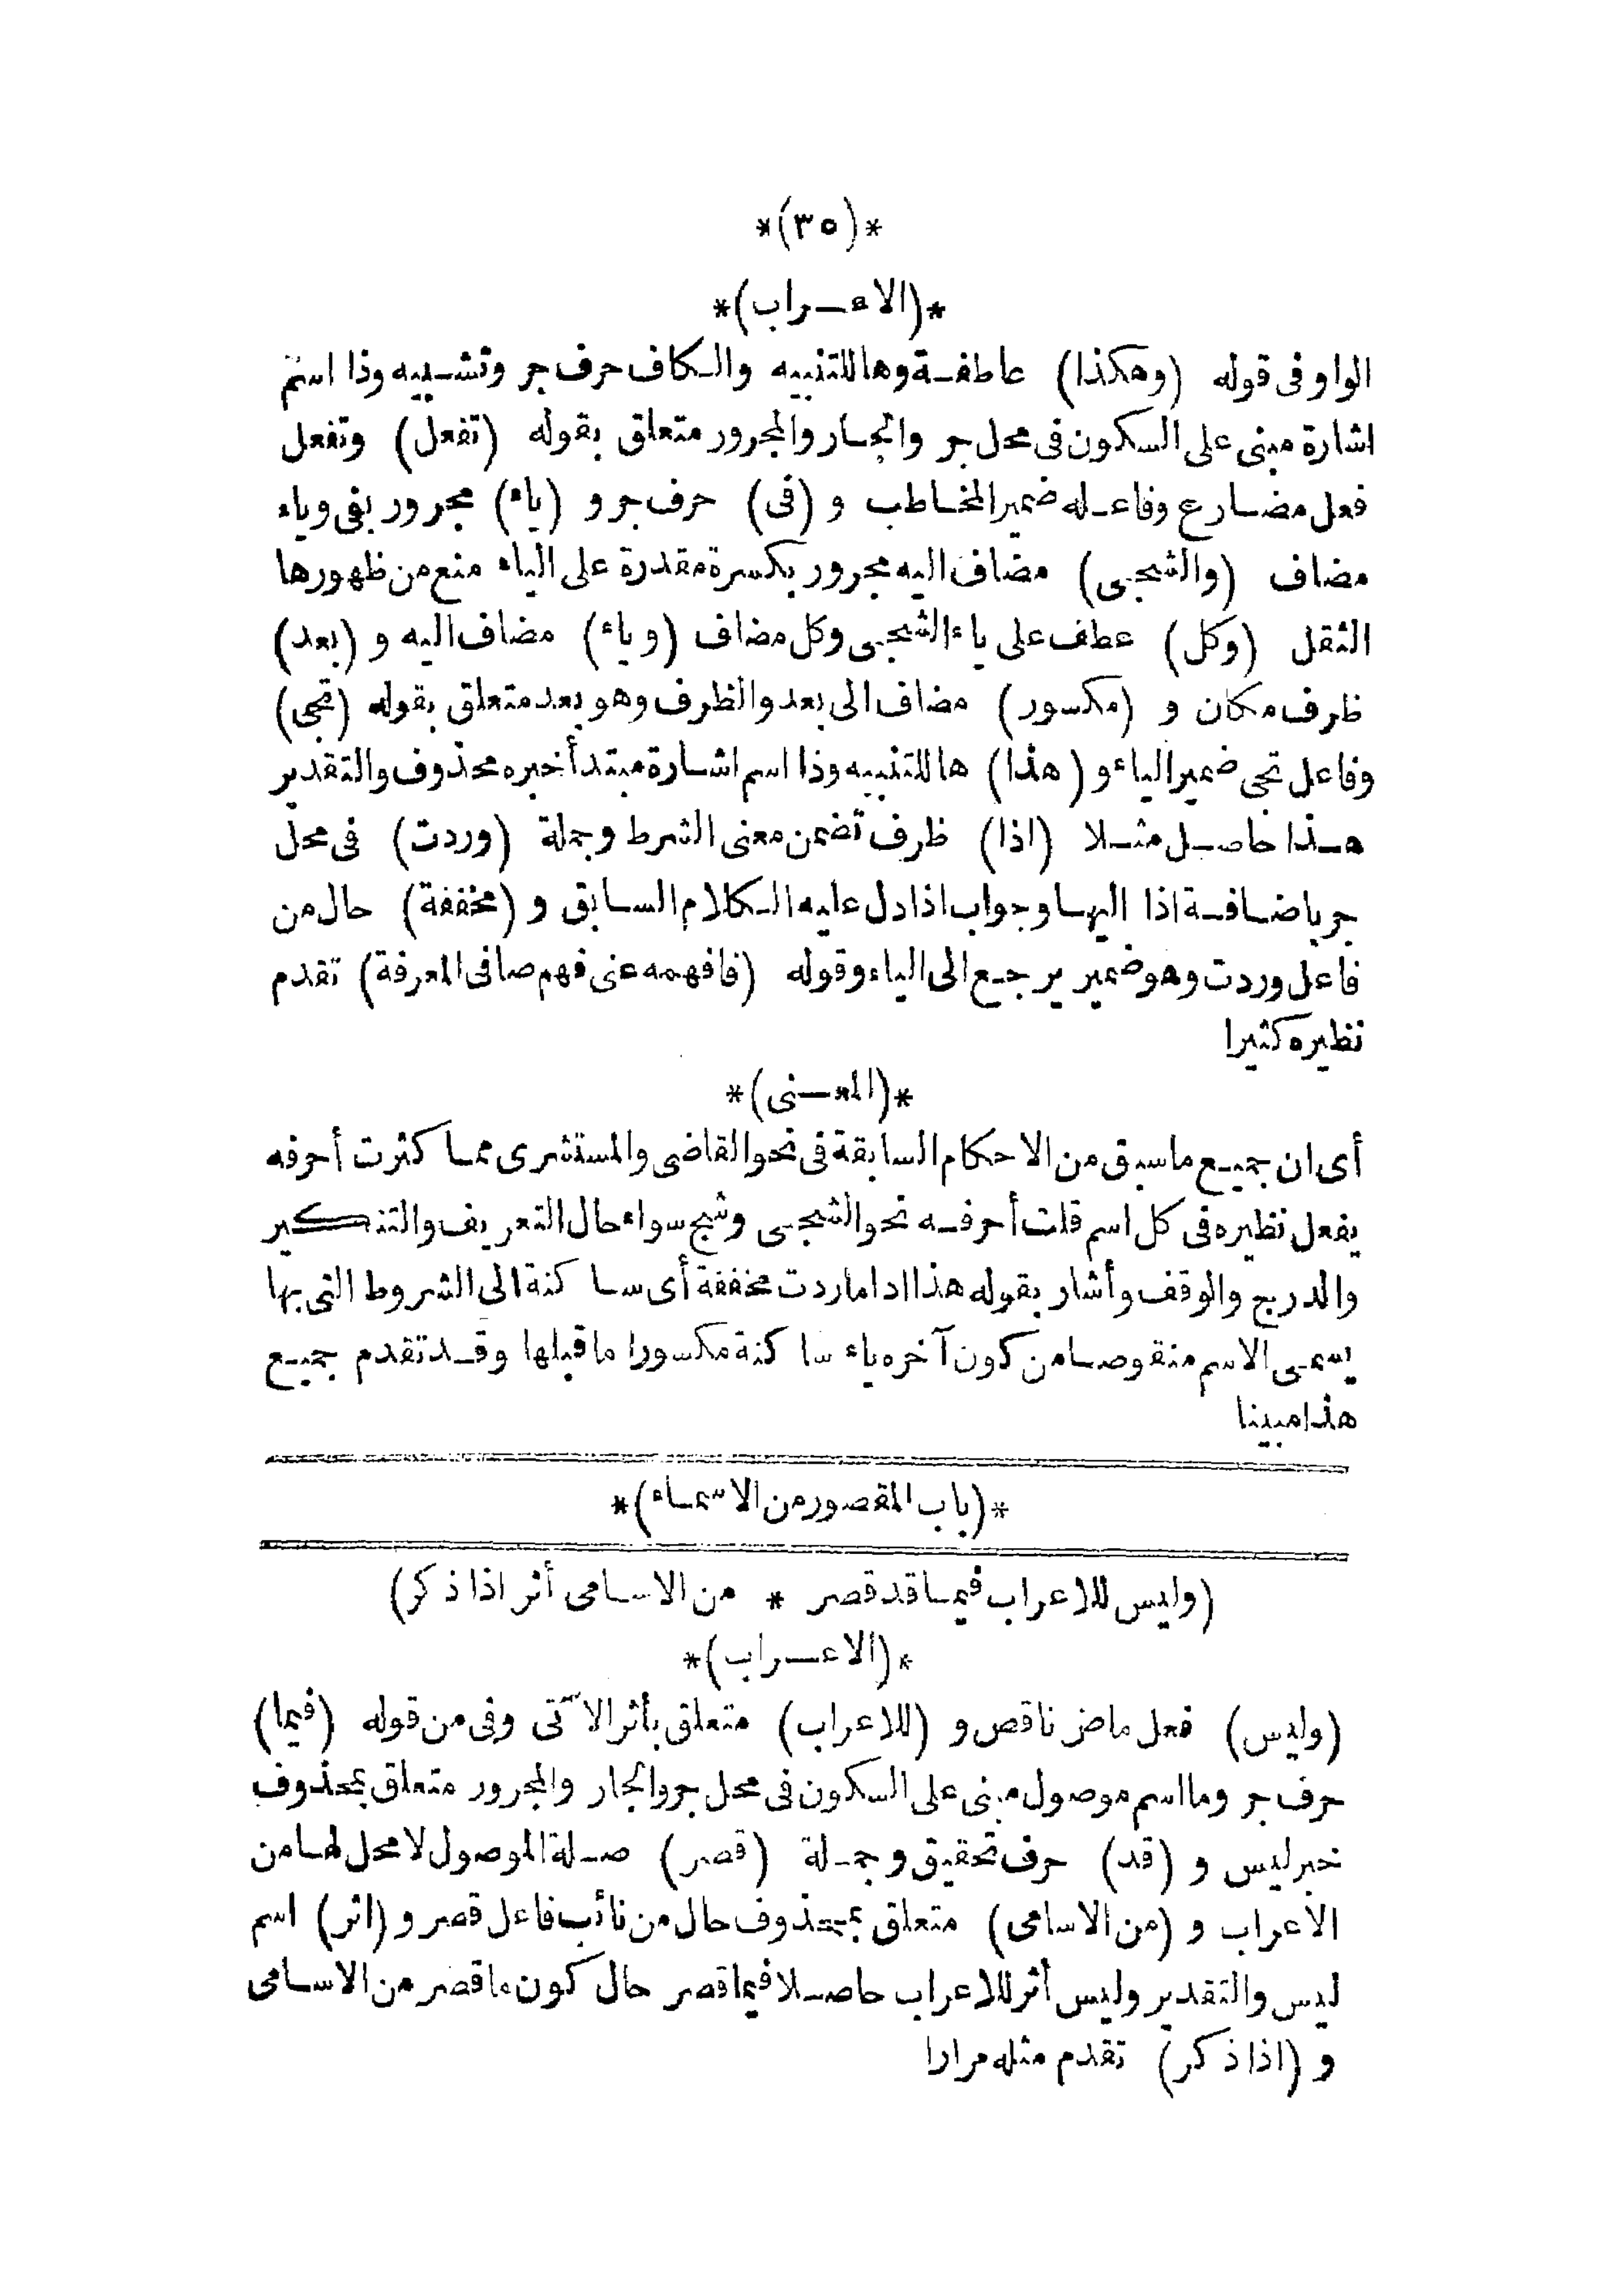 *(٣٥)*
*(الاعراب)*
الواو فى قوله (وهكذا) عاطفة وها للتنبيه والكاف حرف جر وتشبيه وذا اسم
اشارة مبنى على السكون فى محل جر والجار والمجرور متعلق بقوله (تفعل) وتفعل
فعل مضارع وفاعله ضمير المخاطب و (فى) حرف جر و (ياء) مجرور بفى وياء
مضاف (والشجى) مضاف اليه مجرور بكسرة مقدرة على الياء منع من ظهورها
الثقل (وكل) عطف على ياء الشجى وكل مضاف (وياء) مضاف اليه و (بعد)
ظرف مكان و (مكسور) مضاف الى بعد والظرف وهو بعد متعلق بقوله (تجى)
وفاعل تجى ضمير الياء و (هذا) ها للتنبيه وذا اسم اشارة مبتدأ خبره محذوف والتقدير
هذا حاصل مثلا (اذا) ظرف تضمن معنى الشرط وجملة (وردت) فى محل
جر باضافة اذا اليها وجواب اذا دل عليه الكلام السابق و (مخففة) حال من
فاعل وردت وهو ضمير يرجع الى الياء وقوله (فافهمه عنى فهم صافى المعرفة) تقدم
نظيره كثيرا
*(المعنى)*
أى ان جميع ماسبق من الاحكام السابقة فى نحو القاضى والمستشرى مما كثرت أحرفه
يفعل نظيره فى كل اسم قلت أحرفه نحو الشجى وشج سواء حال التعريف والتنكير
والدرج والوقف وأشار بقوله هذا اذا ماردت مخففة أى ساكنة الى الشروط التى بها
يسمى الاسم منقوصا من كون آخره ياء ساكنة مكسورا ماقبلها وقد تقدم جميع
هذا مبينا
*(باب المقصور من الاسماء)*
(وليس للاعراب فيما قد قصر * من الاسامى أثر اذا ذكر)
*(الاعراب)*
(وليس) فعل ماض ناقص و (للاعراب) متعلق بأثر الآتى وفى من قوله (فيما)
حرف جر وما اسم موصول مبنى على السكون فى محل جر والجار والمجرور متعلق بمحذوف
خبر ليس و (قد) حرف تحقيق وجملة (قصر) صلة الموصول لا محل لها من
الاعراب و (من الاسامى) متعلق بمحذوف حال من نائب فاعل قصر و (اثر) اسم
ليس والتقدير وليس أثر للاعراب حاصلا فيما قصر حال كون ماقصر من الاسامى
و (اذا ذكر) تقدم مثله مرارا